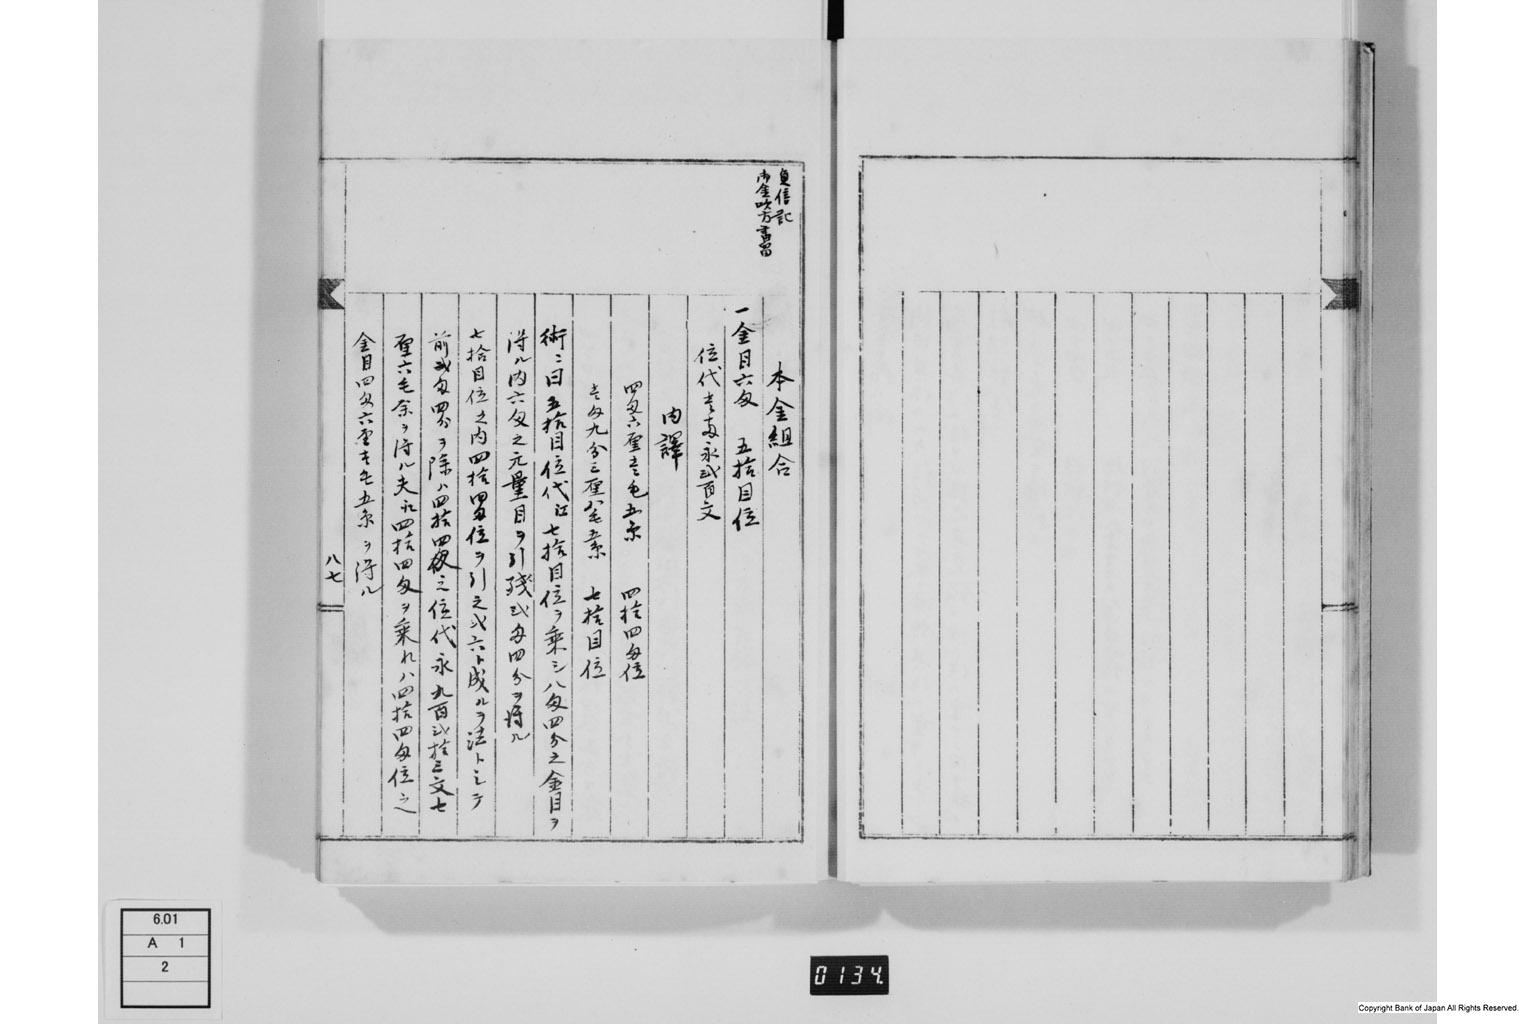 貞信記
御金吹方書留
本金組合
一金目六匁　五拾目位
位代壱両永弐百文
内譯
四匁六厘壱毛五糸　四拾四匁位
壱匁九分三厘八毛五糸　七拾目位
術ニ曰五拾目位代江七拾目位ヲ乘シ八匁四分之金目ヲ
得ル内六匁之元量目ヲ引殘弐匁四分ヲ得ル
七拾目位之内四拾四匁位ヲ引之弐六ト成ルヲ法トシテ
前弐匁四分ヲ除ハ四拾四匁之位代永九百弐拾三文七
厘六毛余ヲ得ル夫江四拾四匁ヲ乘レハ四拾四匁位之
金目四匁六厘壱毛五糸ヲ得ル
八七
6.01
A 1
2
0134.
Copyright Bank of Japan All Rights Reserved.